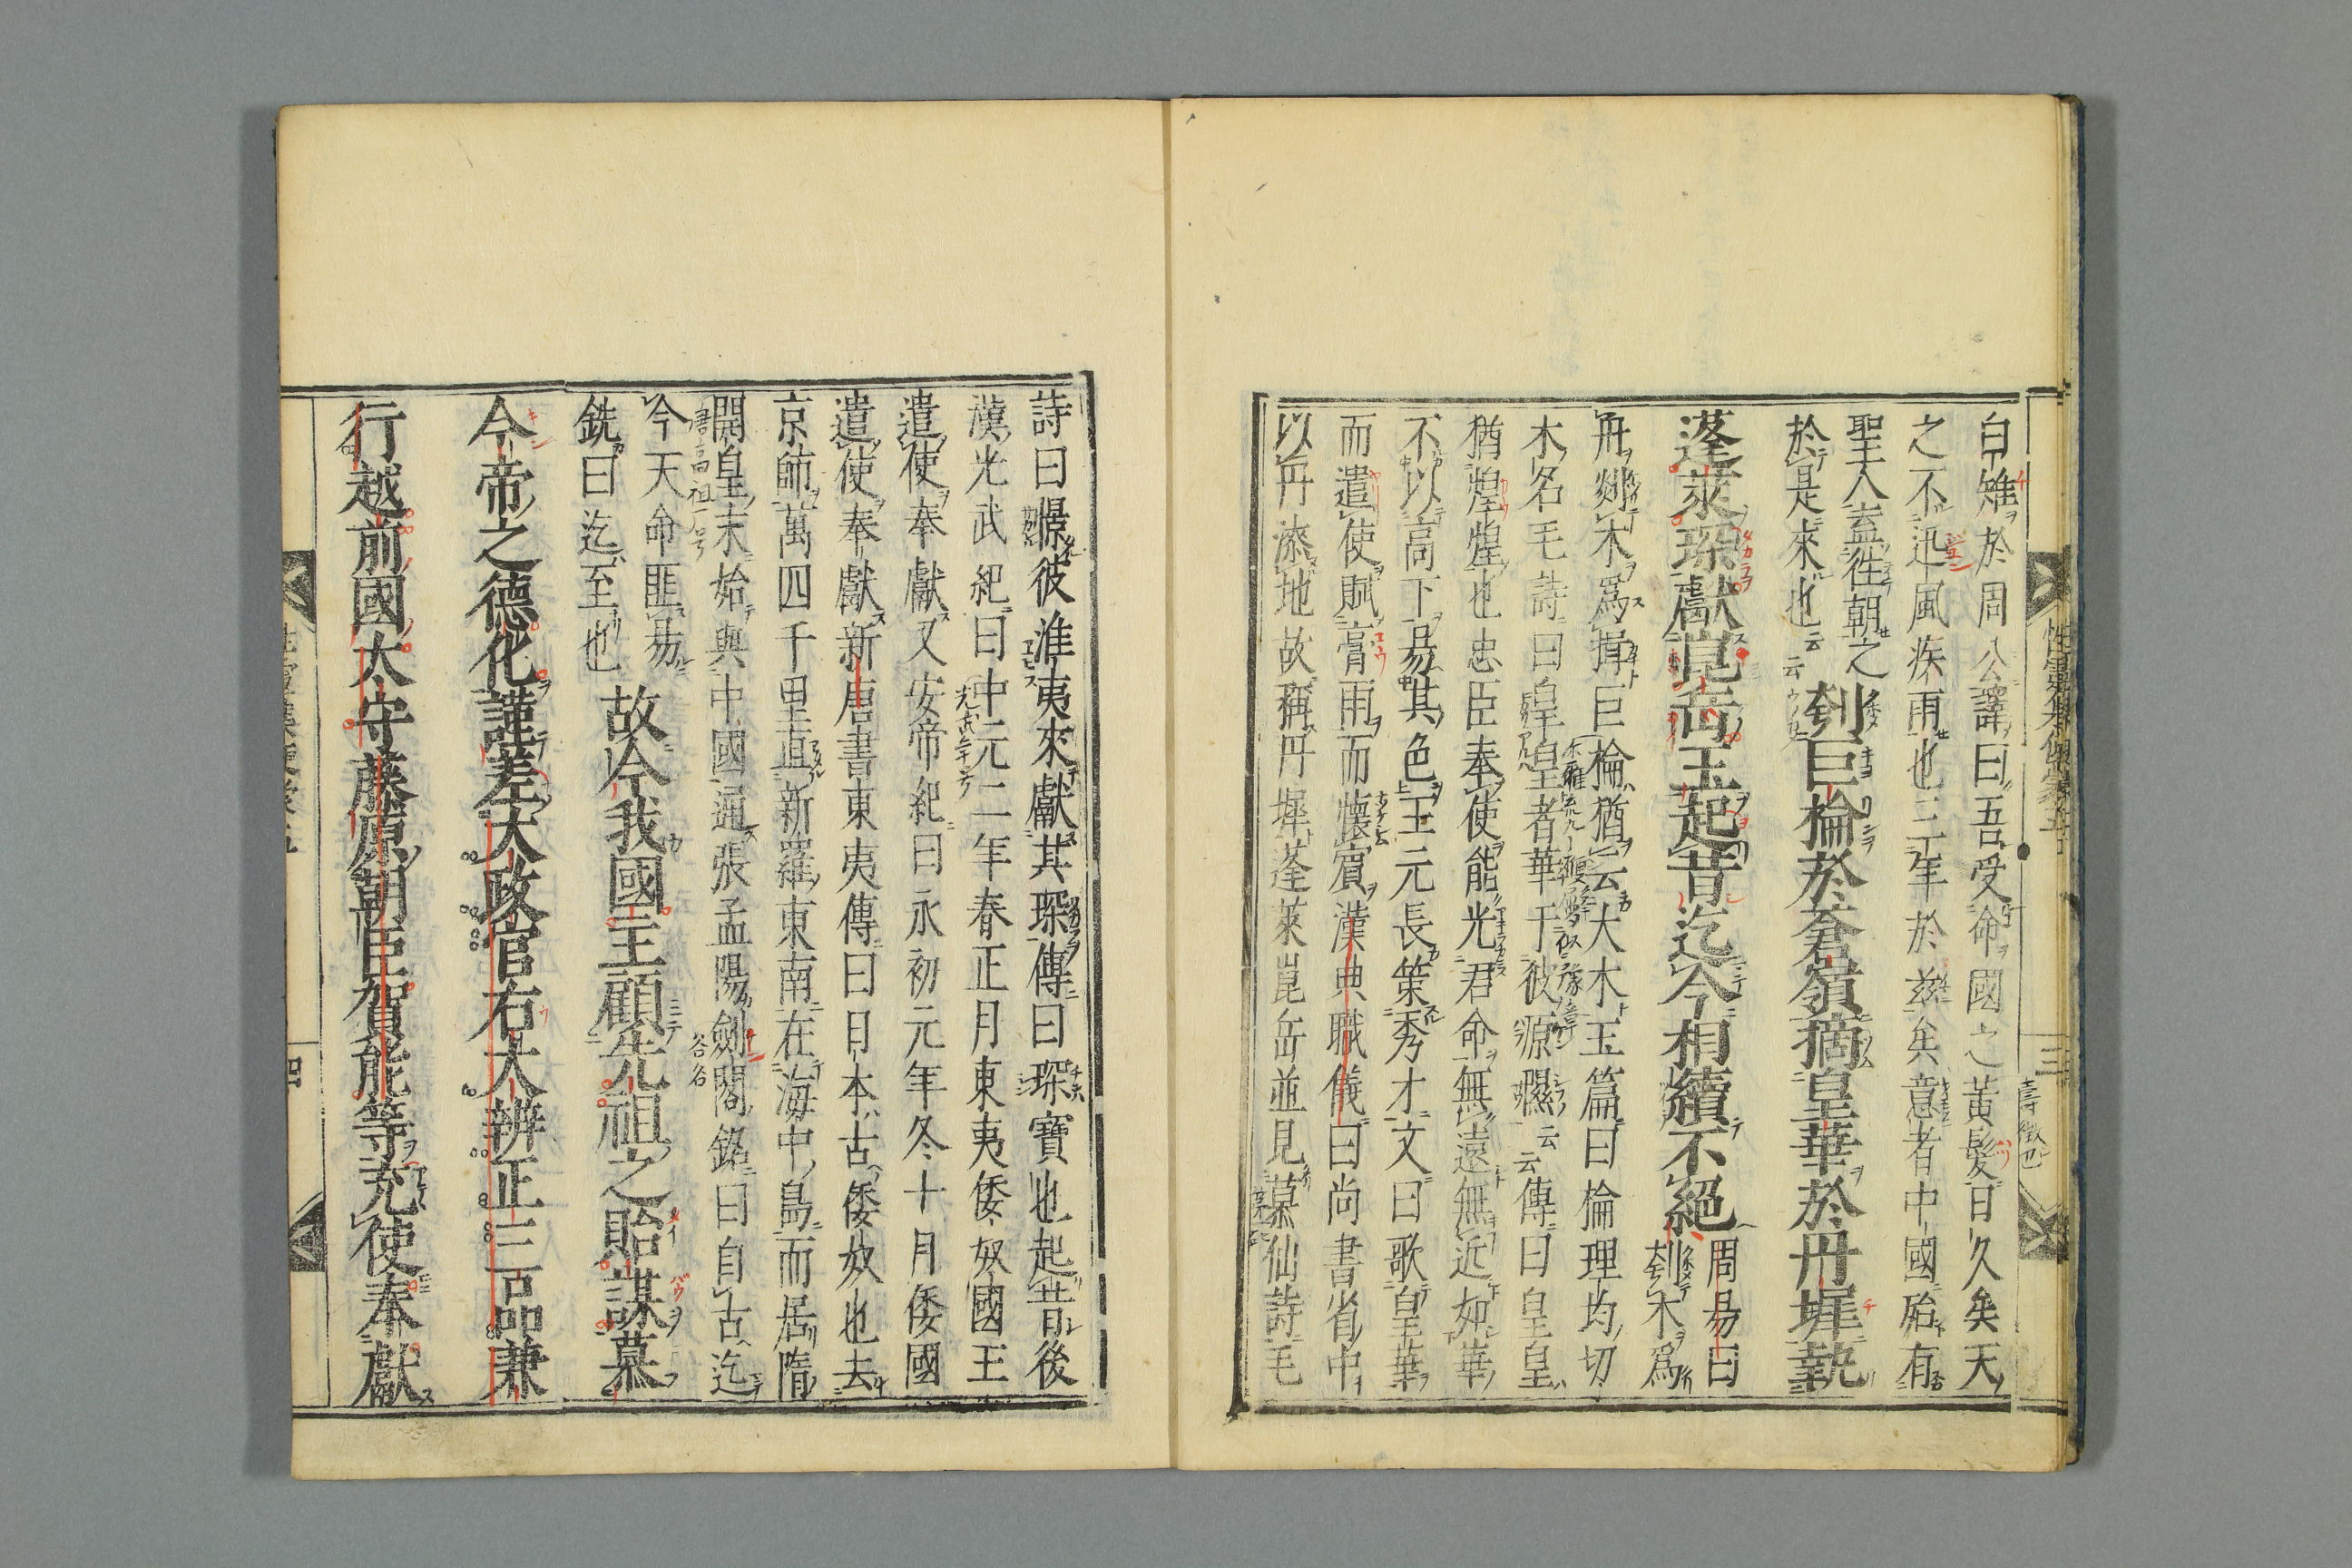 白雉於周公譯曰吾受命國之黃髮曰久矣天
之不迅風疾雨也三年於玆矣意者中國殆有
聖人盍徃朝之
於是來也云云
刳巨檜於蒼嶺摘皇華於丹墀執
蓬萊琛獻崑岳玉起昔迄今相續不絕
周易曰
刳木爲
舟剡木爲揖巨檜猶云大木玉篇曰檜理均切
木名毛詩曰皇皇者華于彼源隰云云傳曰皇皇
猶煌煌也忠臣奉使能光君命無遠無近如華
不以高下易其色王元長策秀才文曰歌皇華
而遣使賦膏雨而懷賓漢典職儀曰尚書省中
以丹漆地故稱丹墀蓬萊崑岳並見慕仙詩毛
詩曰憬彼淮夷來獻其琛傳曰琛寶也起昔後
漢光武紀曰中元二年春正月東夷倭奴國王
遣使奉獻又安帝紀曰永初元年冬十月倭國
遣使奉獻新唐書東夷傳曰日本古倭奴也去
京師萬四千里直新羅東南在海中島而居隋
開皇末始與中國通張孟陽劍閣銘曰自古迄
今天命匪易
銑曰迄至也
故今我國王顧先祖之貽謀慕
今帝之德化謹差大政官右大辨正三品兼
行越前國太守藤原朝臣賀能等充使奉獻